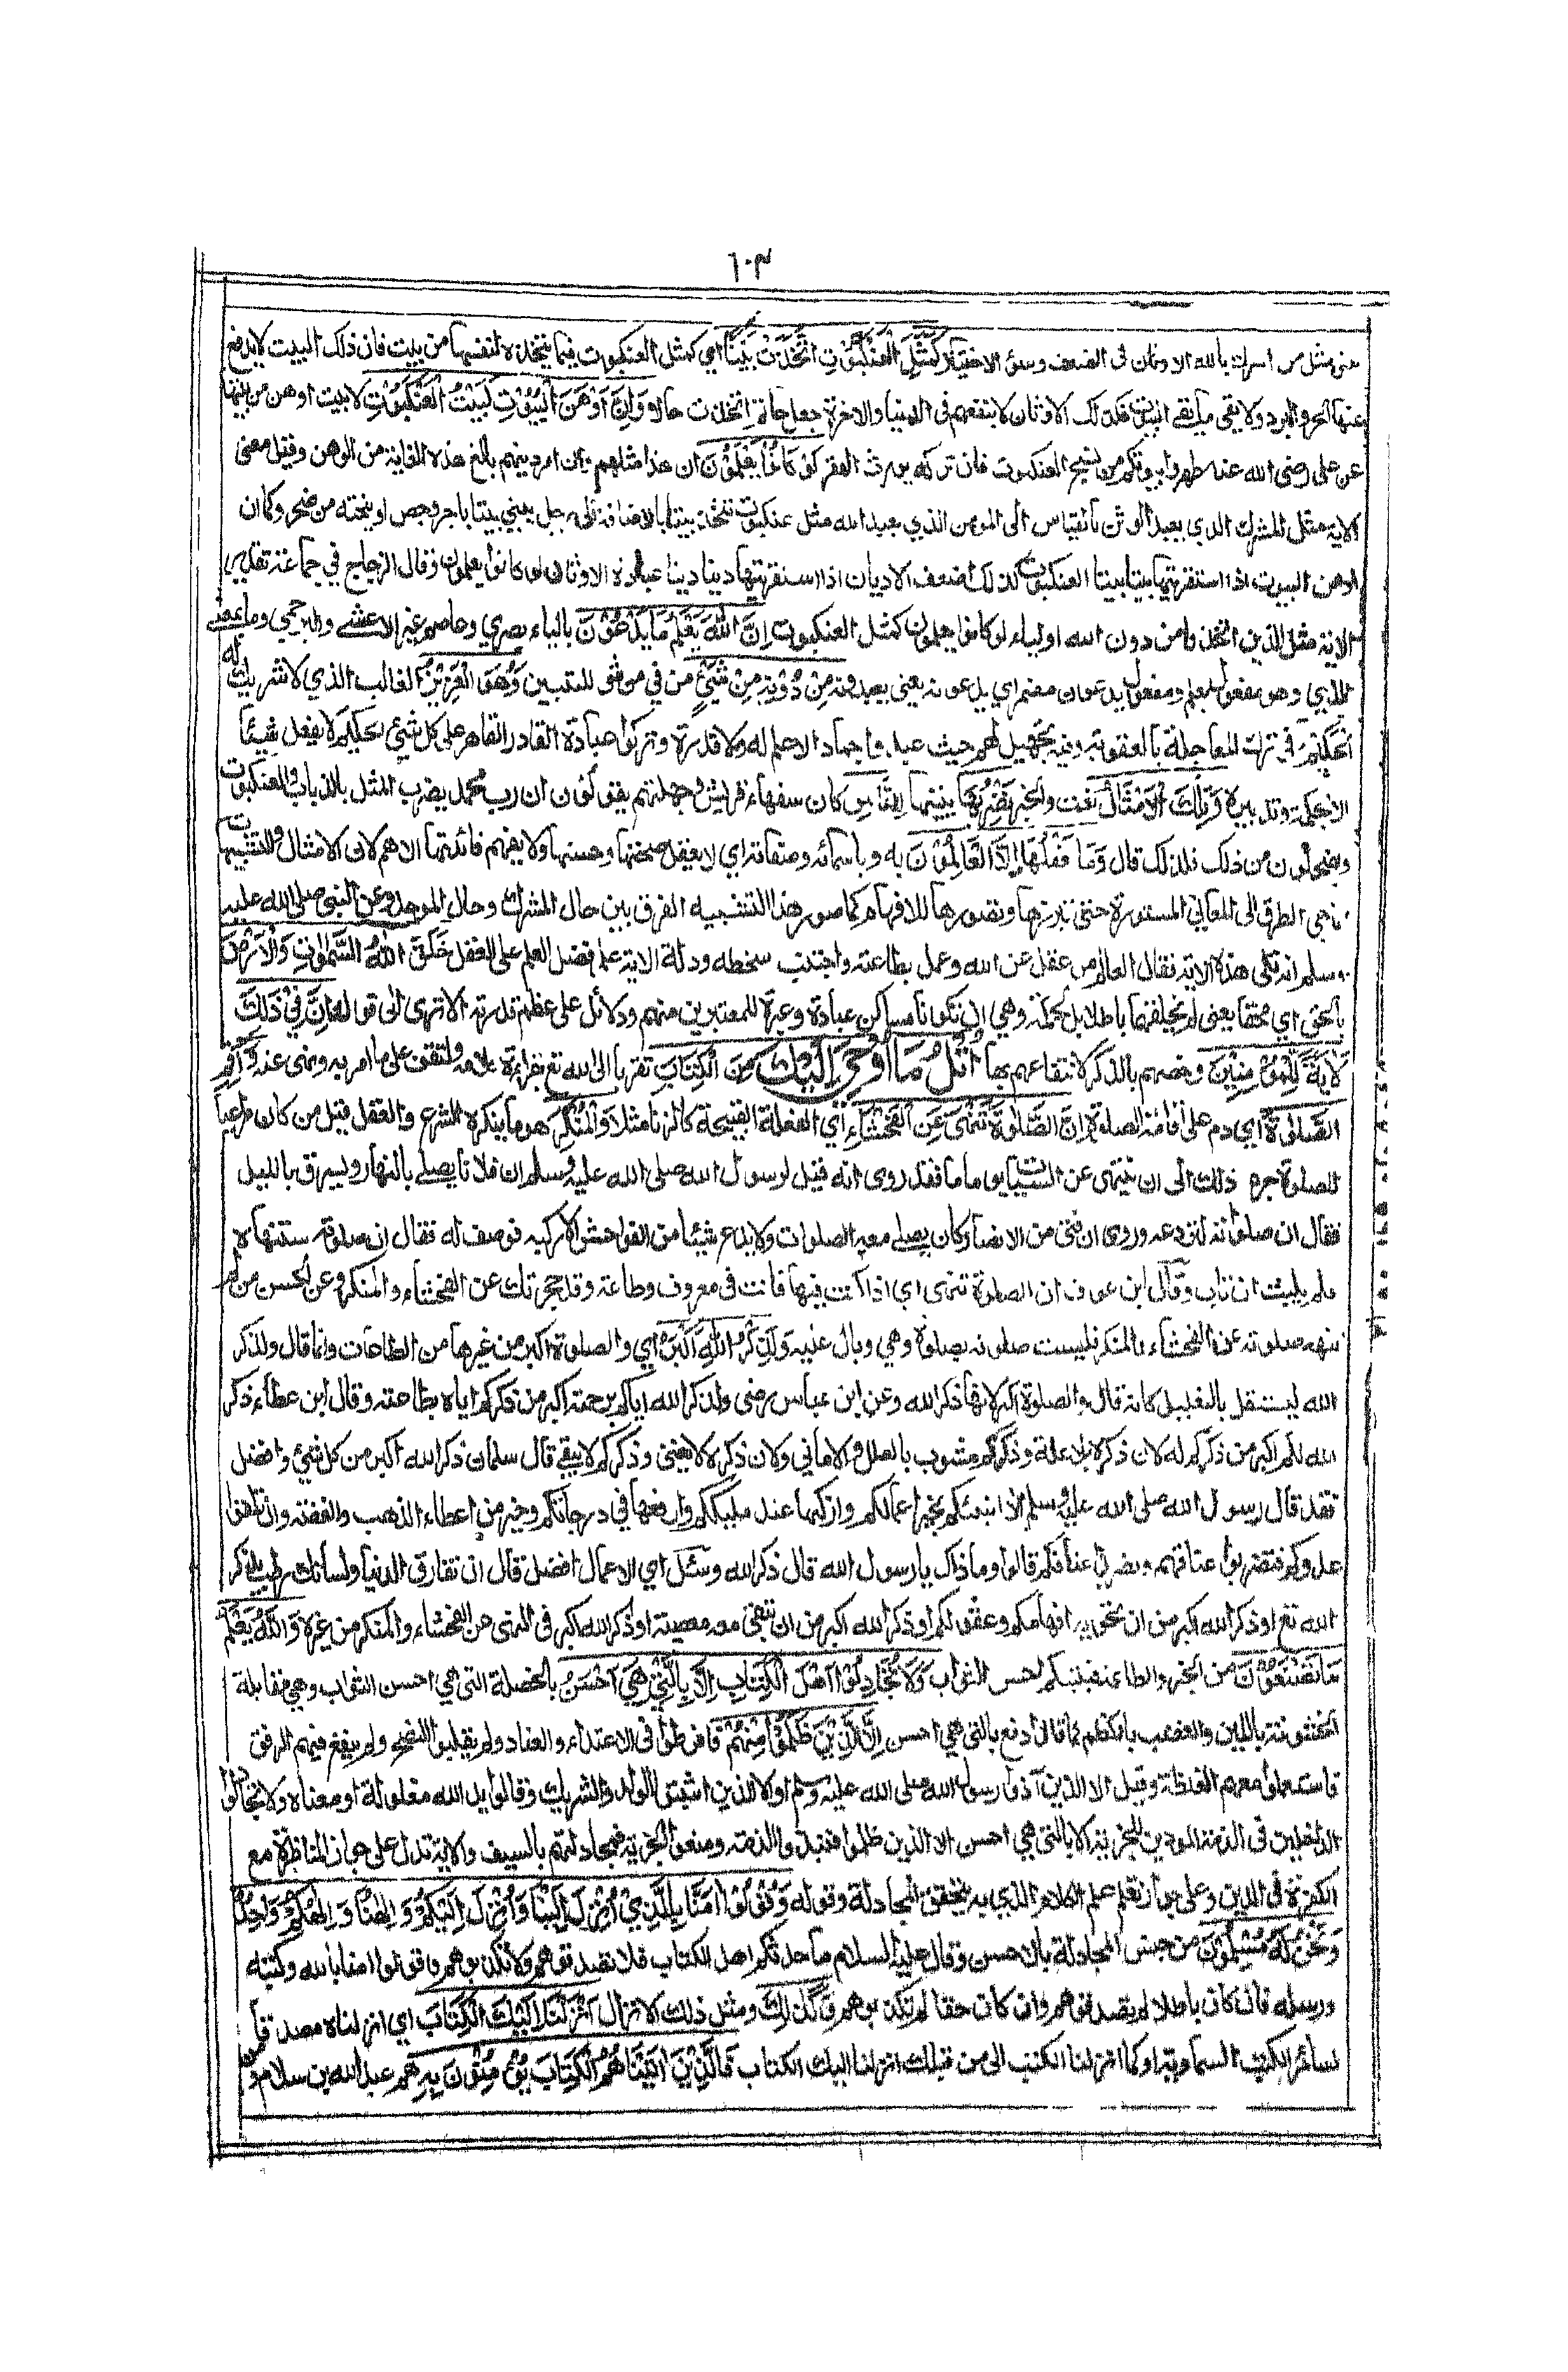 ٦٠٣
معنى مثل من اشرك بالله الاوثان فى الضعف وسوء الاختيار كَمَثَلِ الْعَنْكَبُوْتِ اتَّخَذَتْ بَيْتًا اي كمثل العنكبوت فيما يتخذه لنفسها من بيت فان ذلك البيت لا يدفع
عنها الحر والبرد ولا يقي ما يقي البيوت فكذلك الاوثان لا ينفعهم فى الدنيا والاخرة جعل حاتم اتخذت حالا وَاِنَّ اَوْهَنَ الْبُيُوْتِ لَبَيْتُ الْعَنْكَبُوْتِ لا بيت اوهن من بيتها
عن على رضى الله عنه طهروا بيوتكم من نسيج العنكبوت فان تركه يورث الفقر لَوْ كَانُوْا يَعْلَمُوْنَ ان هذا مثلهم وان امر دينهم بالغ هذه الغاية من الوهن وقيل معنى
الاية مثل المشرك الذي يعبد الوثن بالقياس الى المومن الذي يعبد الله مثل عنكبوت تتخذ بيتا بالاضافة الى رجل يبني بيتا باجر وجص او ينحته من صخر وكما ان
اوهن البيوت اذا استقريتها بيتا بيتا بيت العنكبوت كذلك اضعف الاديان اذا استقريتها دينا دينا عبادة الاوثان لو كانوا يعلمون وقال الزجاج في جماعة تقدير
الاية مثل الذين اتخذوا من دون الله اولياء لو كانوا يعلمون كمثل العنكبوت اِنَّ اللّٰهَ يَعْلَمُ مَا يَدْعُوْنَ بالياء بصري وعاصم غير الاعشى والبرجمي وما بمعنى
الذي وهو مفعول يعلم ومفعول يدعون مضمر اي يدعونه يعنى يعبدونه مِنْ دُوْنِهٖ مِنْ شَيْءٍ من في من شيء للتبيين وَهُوَ الْعَزِيْزُ الغالب الذي لا شريك له
الْحَكِيْمُ في ترك المعاجلة بالعقوبة وفيه تجهيل لهم حيث عبدوا جمادا لا علم له ولا قدرة وتركوا عبادة القادر القاهر على كل شيء الحكيم لا يفعل شيئا
الا بحكمة وتدبير وَتِلْكَ الْاَمْثَالُ نعت والخبر نَضْرِبُهَا نبينها لِلنَّاسِ كان سفهاء قريش وجهلتهم يقولون ان رب محمد يضرب المثل بالذباب والعنكبوت
ويضحكون من ذلك فلذلك قال وَمَا يَعْقِلُهَا اِلَّا الْعَالِمُوْنَ به وباسمائه وصفاته اي لا يعقل صحتها وحسنها ولا يفهم فائدتها الا هم لان الامثال والتشبيهات
انما هي الطرق الى المعاني المستورة حتى تبرزها وتصورها للافهام كما صور هذا التشبيه الفرق بين حال المشرك وحال الموحد وعن النبي صلى الله عليه
وسلم انه تلى هذه الاية فقال العالم من عقل عن الله وعمل بطاعته واجتنب سخطه ودلة الاية على فضل العلم على العقل خَلَقَ اللّٰهُ السَّمٰوٰتِ وَالْاَرْضَ
بِالْحَقِّ اي محقا يعنى لم يخلقهما باطلا بل لحكمة وهي ان تكونا مساكن عبادة وعبرة للمعتبرين منهم ودلائل على عظم قدرته الا ترى الى قوله اِنَّ فِيْ ذٰلِكَ
لَاٰيَةً لِّلْمُؤْمِنِيْنَ وخصهم بالذكر لانتفاعهم بها اُتْلُ مَا اُوْحِيَ اِلَيْكَ مِنَ الْكِتَابِ تقربا الى الله تع بقراءة كلامه ولتقف على ما امر به ونهى عنه وَاَقِمِ
الصَّلٰوةَ اي دم على اقامة الصلوة اِنَّ الصَّلٰوةَ تَنْهٰى عَنِ الْفَحْشَاءِ اي الفعلة القبيحة كالزنا مثلا وَالْمُنْكَرِ هو ما ينكره الشرع والعقل قيل من كان مراعيا
للصلوة جره ذلك الى ان ينتهى عن السيئات يوما ما فقد روى انه قيل لرسول الله صلى الله عليه وسلم ان فلانا يصلي بالنهار ويسرق بالليل
فقال ان صلوته لتردعه وروى ان فتى من الانصار كان يصلي معه الصلوات ولا يدع شيئا من الفواحش الا ركبه فوصف له فقال ان صلوته ستنهاه
فلم يلبث ان تاب وقال ابن عوف ان الصلوة تنهى اي اذا كنت فيها فانت فى معروف وطاعة وقد حجزتك عن الفحشاء والمنكر وعن الحسن من لم
تنهه صلوته عن الفحشاء والمنكر فليست صلوته بصلوة وهي وبال عليه وَلَذِكْرُ اللّٰهِ اَكْبَرُ اي والصلوة اكبر من غيرها من الطاعات وانما قال ولذكر
الله ليستقل بالتعليل كانه قال والصلوة اكبر لانها ذكر الله وعن ابن عباس رضى ولذكر الله اياكم برحمته اكبر من ذكركم اياه بطاعته وقال ابن عطاء ذكر
الله لكم اكبر من ذكركم له لان ذكره بلا علة وذكركم مشوب بالعلل والاماني ولان ذكره لا يفنى وذكركم لا يبقى قال سلمان ذكر الله اكبر من كل شيء وافضل
فقد قال رسول الله صلى الله عليه وسلم الا انبئكم بخير اعمالكم وازكيها عند مليككم وارفعها في درجاتكم وخير من اعطاء الذهب والفضة وان تلقوا
عدوكم فتضربوا اعناقهم ويضربوا اعناقكم قالوا وما ذاك يا رسول الله قال ذكر الله وسئل اي الاعمال افضل قال ان تفارق الدنيا ولسانك رطب بذكر
الله تع او ذكر الله اكبر من ان تحويه افهامكم وعقولكم او ذكر الله اكبر من ان تبقى معه معصية او ذكر الله اكبر فى النهى عن الفحشاء والمنكر من غيره وَاللّٰهُ يَعْلَمُ
مَا تَصْنَعُوْنَ من الخير والطاعة فيثيبكم احسن الثواب وَلَا تُجَادِلُوْا اَهْلَ الْكِتَابِ اِلَّا بِالَّتِيْ هِيَ اَحْسَنُ بالخصلة التى هي احسن الثواب وهي مقابلة
الخشونة باللين والغضب بالكظم كما قال ادفع بالتى هي احسن اِلَّا الَّذِيْنَ ظَلَمُوْا مِنْهُمْ فافرطوا فى الاعتداء والعناد ولم يقبلوا النصح ولم ينفع فيهم الرفق
فاستعملوا معهم الغلظة وقيل الا الذين آذوا رسول الله صلى الله عليه وسلم او الا الذين اثبتوا الولد والشريك وقالوا يد الله مغلولة او معناه ولا تجادلوا
الداخلين فى الذمة المودين للجزية الا بالتى هي احسن الا الذين ظلموا فنبذوا الذمة ومنعوا الجزية فمجادلتهم بالسيف والاية تدل على جواز المناظرة مع
الكفرة فى الدين وعلى جواز تعلم علم الكلام الذي به يتحقق المجادلة وقوله وَقُوْلُوْا اٰمَنَّا بِالَّذِيْ اُنْزِلَ اِلَيْنَا وَاُنْزِلَ اِلَيْكُمْ وَاِلٰهُنَا وَاِلٰهُكُمْ وَاحِدٌ
وَنَحْنُ لَهٗ مُسْلِمُوْنَ من جنس المجادلة بالاحسن وقال عليه السلام ما حدثكم اهل الكتاب فلا تصدقوهم ولا تكذبوهم وقولوا امنا بالله وكتبه
ورسله فان كان باطلا لم تصدقوهم وان كان حقا لم تكذبوهم وَكَذٰلِكَ ومثل ذلك الانزال اَنْزَلْنَا اِلَيْكَ الْكِتَابَ اي انزلناه مصدقا
لسائر الكتب السماوية او كما انزلنا الكتب الى من قبلك انزلنا اليك الكتاب فَالَّذِيْنَ اٰتَيْنَاهُمُ الْكِتَابَ يُؤْمِنُوْنَ بِهٖ هم عبد الله بن سلام